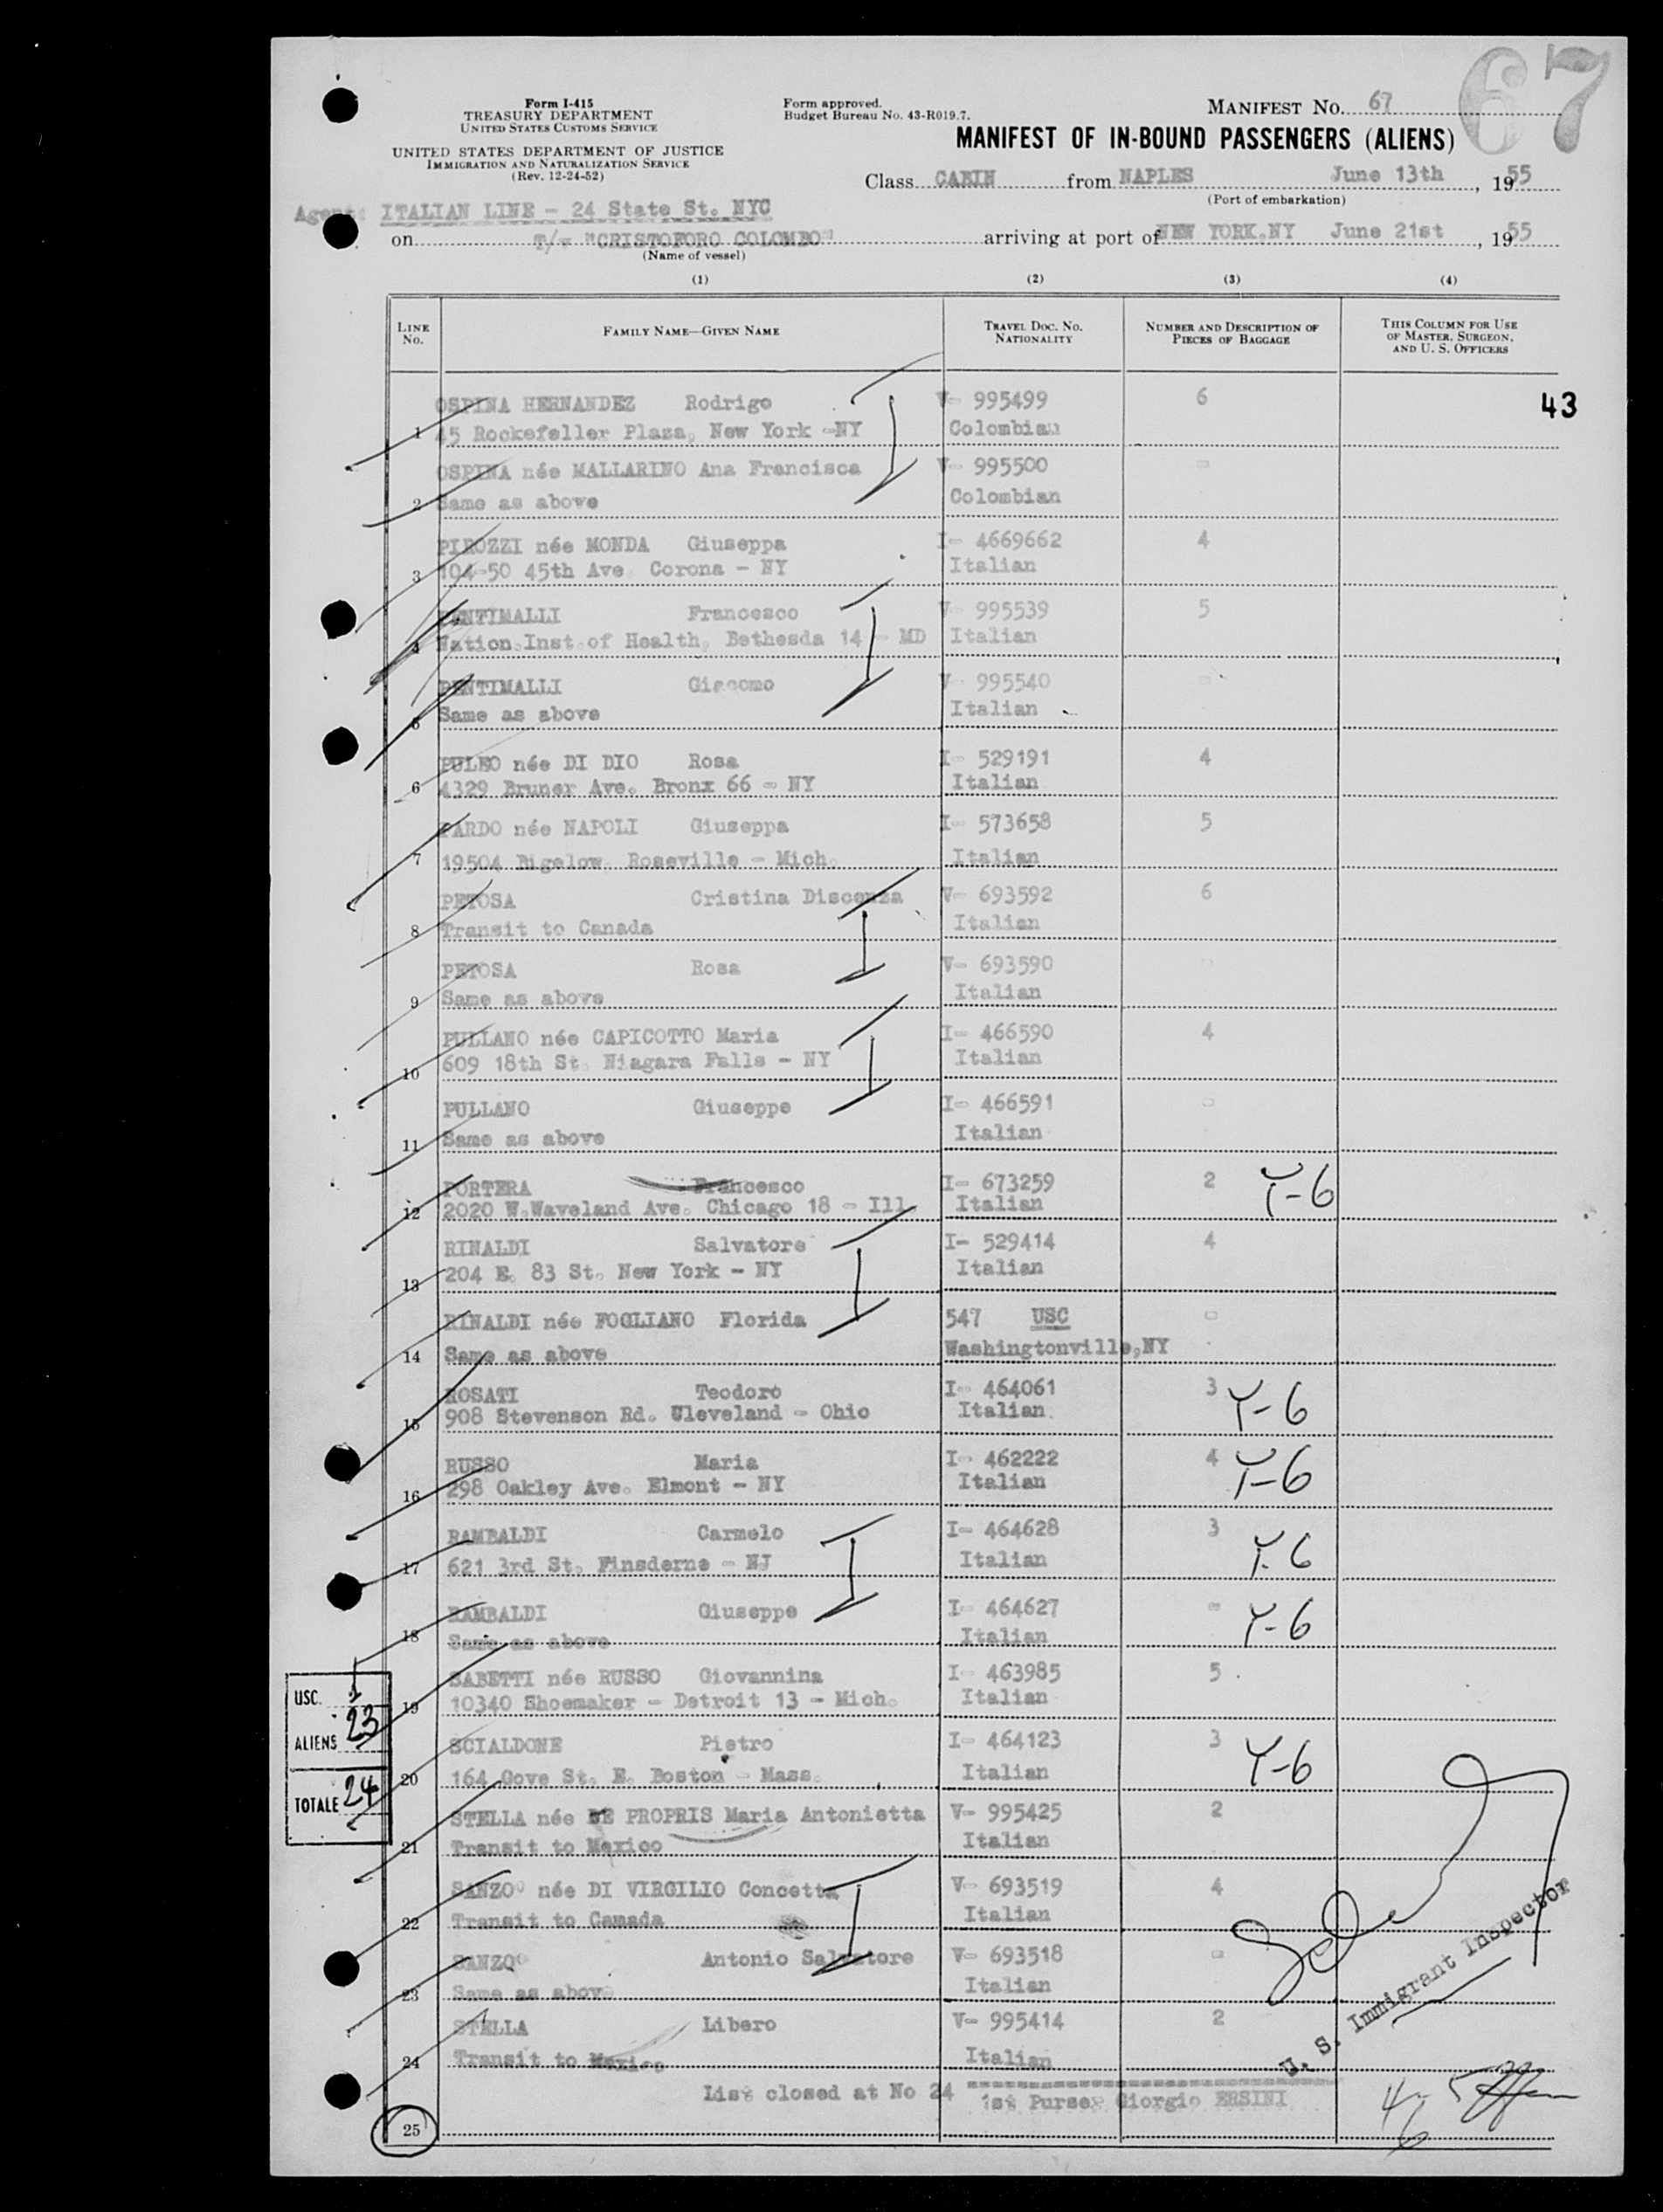 67
Form I-415
TREASURY DEPARTMENT
UNITED STATES CUSTOMS SERVICE
UNITED STATES DEPARTMENT OF JUSTICE
IMMIGRATION AND NATURALIZATION SERVICE
(Rev. 12-24-52)
Form approved.
Budget Bureau No. 43-R019.7.
MANIFEST No. 67
MANIFEST OF IN-BOUND PASSENGERS (ALIENS)
Class CABIN from NAPLES June 13th, 1955
(Port of embarkation)
Agent: ITALIAN LINE - 24 State St. NYC
on T/v "CRISTOFORO COLOMBO" arriving at port of NEW YORK.NY June 21st, 1955
(Name of vessel)
(1) (2) (3) (4)
LINE No. FAMILY NAME—GIVEN NAME TRAVEL DOC. NO. NATIONALITY NUMBER AND DESCRIPTION OF PIECES OF BAGGAGE THIS COLUMN FOR USE OF MASTER, SURGEON, AND U. S. OFFICERS
43
OSPINA HERNANDEZ Rodrigo V- 995499 6
1 45 Rockefeller Plaza, New York -NY Colombian
OSPINA née MALLARINO Ana Francisca V- 995500 -
2 Same as above Colombian
PIROZZI née MONDA Giuseppa I- 4669662 4
3 104-50 45th Ave. Corona - NY Italian
PENTIMALLI Francesco V- 995539 5
4 Nation.Inst.of Health, Bethesda 14 - MD Italian
PENTIMALLI Giacomo V- 995540 -
5 Same as above Italian
PULEO née DI DIO Rosa I- 529191 4
6 4329 Bruner Ave. Bronx 66 - NY Italian
PARDO née NAPOLI Giuseppa I- 573658 5
7 19504 Bigelow. Roseville - Mich. Italian
PETOSA Cristina Discenza V- 693592 6
8 Transit to Canada Italian
PETOSA Rosa V- 693590 -
9 Same as above Italian
PULLANO née CAPICOTTO Maria I- 466590 4
10 609 18th St. Niagara Falls - NY Italian
PULLANO Giuseppe I- 466591 -
11 Same as above Italian
PORTERA Francesco I- 673259 2 Y-6
12 2020 W.Waveland Ave. Chicago 18 - Ill. Italian
RINALDI Salvatore I- 529414 4
13 204 E. 83 St. New York - NY Italian
RINALDI née FOGLIANO Florida 547 USC -
14 Same as above Washingtonville,NY
ROSATI Teodoro I- 464061 3 Y-6
15 908 Stevenson Rd. Cleveland - Ohio Italian.
RUSSO Maria I- 462222 4 Y-6
16 298 Oakley Ave. Elmont - NY Italian
RAMBALDI Carmelo I- 464628 3 Y-6
17 621 3rd St. Finsderne - NJ Italian
RAMBALDI Giuseppe I- 464627 - Y-6
18 Same as above Italian
SABETTI née RUSSO Giovannina I- 463985 5
19 10340 Shoemaker - Detroit 13 - Mich. Italian
SCIALDONE Pietro I- 464123 3 Y-6
20 164 Gove St. E. Boston - Mass. Italian
STELLA née DE PROPRIS Maria Antonietta V- 995425 2
21 Transit to Mexico Italian
SANZO née DI VIRGILIO Concetta V- 693519 4
22 Transit to Canada Italian
SANZO Antonio Salvatore V- 693518 -
23 Same as above Italian
STELLA Libero V- 995414 2
24 Transit to Mexico Italian
List closed at No 24
1st Purser Giorgio ERSINI
25
USC. 1
ALIENS 23
TOTALE 24
U. S. Immigrant Inspector